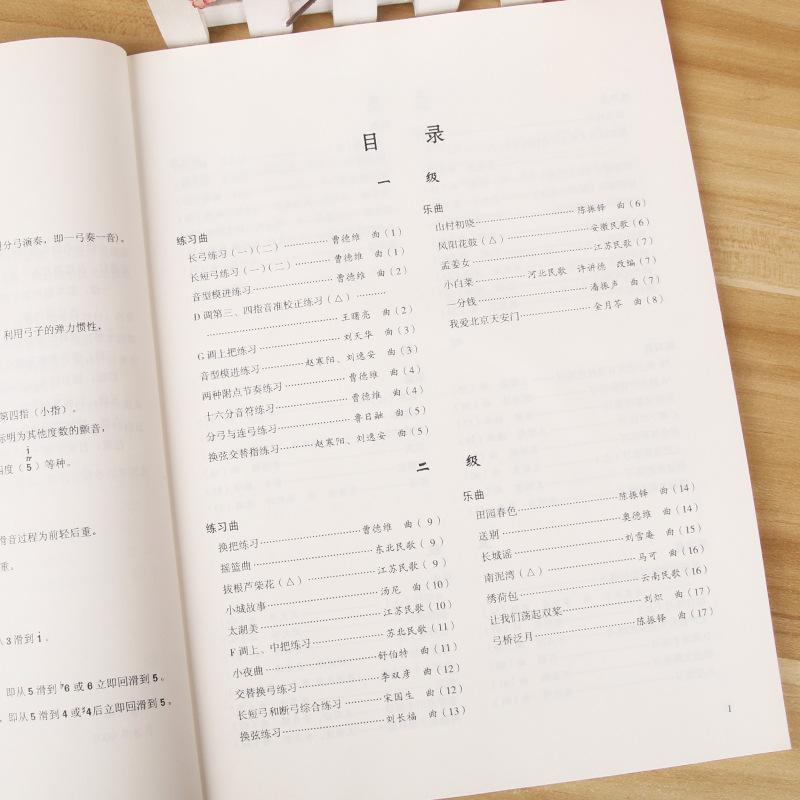 用分弓演奏，即一弓奏一音)。
利用弓子的弹力惯性，
第四指（小指）。
标明为其他度数的颤音，
四度（5）等种。
滑音过程为前轻后重。
重。
从3滑到i。
即从5滑到♭6或6立即回滑到5。
，即从5滑到4或♯4后立即回滑到5。
目 录
一 级
练习曲
长弓练习（一）（二）……………曹德维 曲（1）
长短弓练习（一）（二）……………曹德维 曲（1）
音型模进练习……………曹德维 曲（2）
D调第三、四指音准校正练习（△）………
……………王曙亮 曲（2）
G调上把练习……………刘天华 曲（3）
音型模进练习……………赵寒阳、刘逸安 曲（3）
两种附点节奏练习……………曹德维 曲（4）
十六分音符练习……………曹德维 曲（4）
分弓与连弓练习……………鲁日融 曲（5）
换弦交替指练习……………赵寒阳、刘逸安 曲（5）
乐曲
山村初晓……………陈振铎 曲（6）
凤阳花鼓（△）……………安徽民歌（6）
孟姜女……………江苏民歌（7）
小白菜……………河北民歌 许讲德 改编（7）
一分钱……………潘振声 曲（7）
我爱北京天安门……………金月苓 曲（8）
二 级
练习曲
换把练习……………曹德维 曲（9）
摇篮曲……………东北民歌（9）
拔根芦柴花（△）……………江苏民歌（9）
小城故事……………汤尼 曲（10）
太湖美……………江苏民歌（10）
F调上、中把练习……………苏北民歌（11）
小夜曲……………舒伯特 曲（11）
交替换弓练习……………李双彦 曲（12）
长短弓和断弓综合练习……………宋国生 曲（12）
换弦练习……………刘长福 曲（13）
乐曲
田园春色……………陈振铎 曲（14）
送别……………奥德维 曲（14）
长城谣……………刘雪庵 曲（15）
南泥湾（△）……………马可 曲（16）
绣荷包……………云南民歌（16）
让我们荡起双桨……………刘炽 曲（17）
弓桥泛月……………陈振铎 曲（17）
1